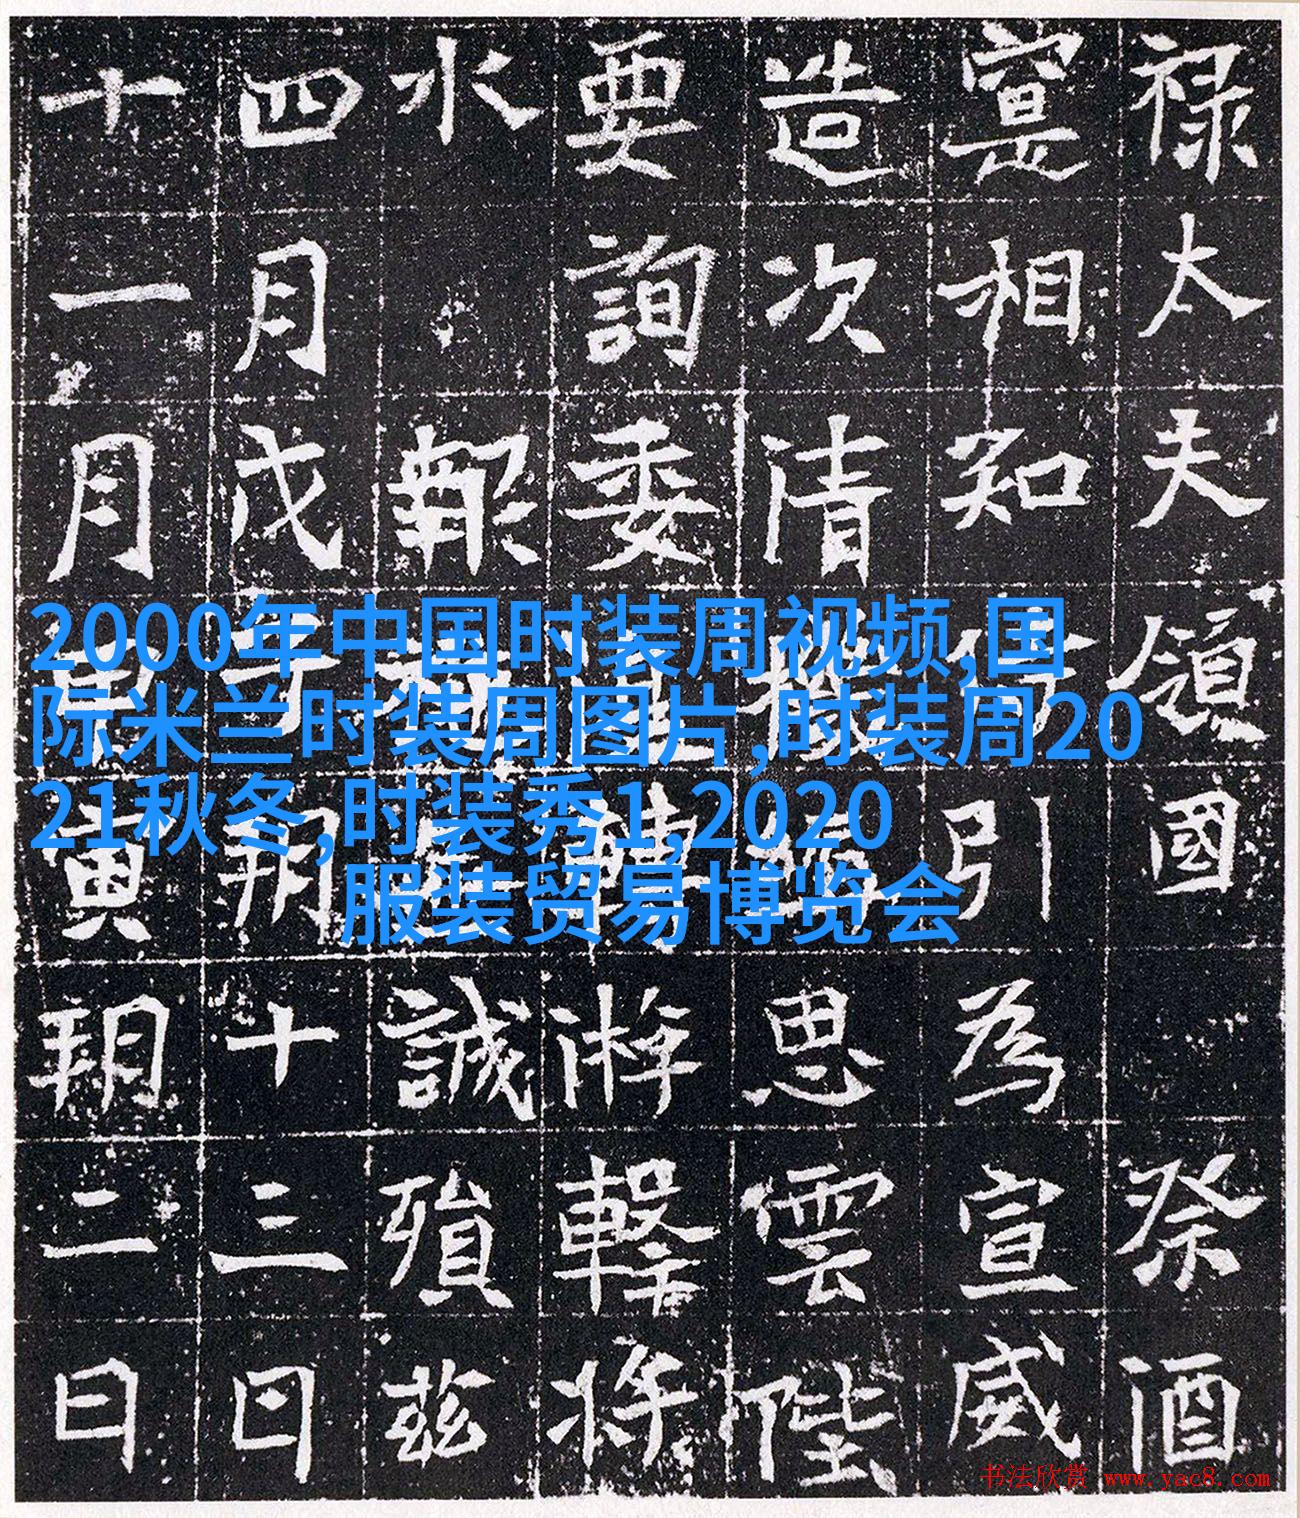 禄太夫領國祭酒
寔相知引為宣威
造次清思雲陛
要詢委游擊將
水報誠殞茲
四月戊子朔十三日
十一月寅朔二日
2000年中国时装周视频,国
际米兰时装周图片,时装周20
21秋冬,时装秀1,2020
服装贸易博览会
书法欣赏 www.yac8.com